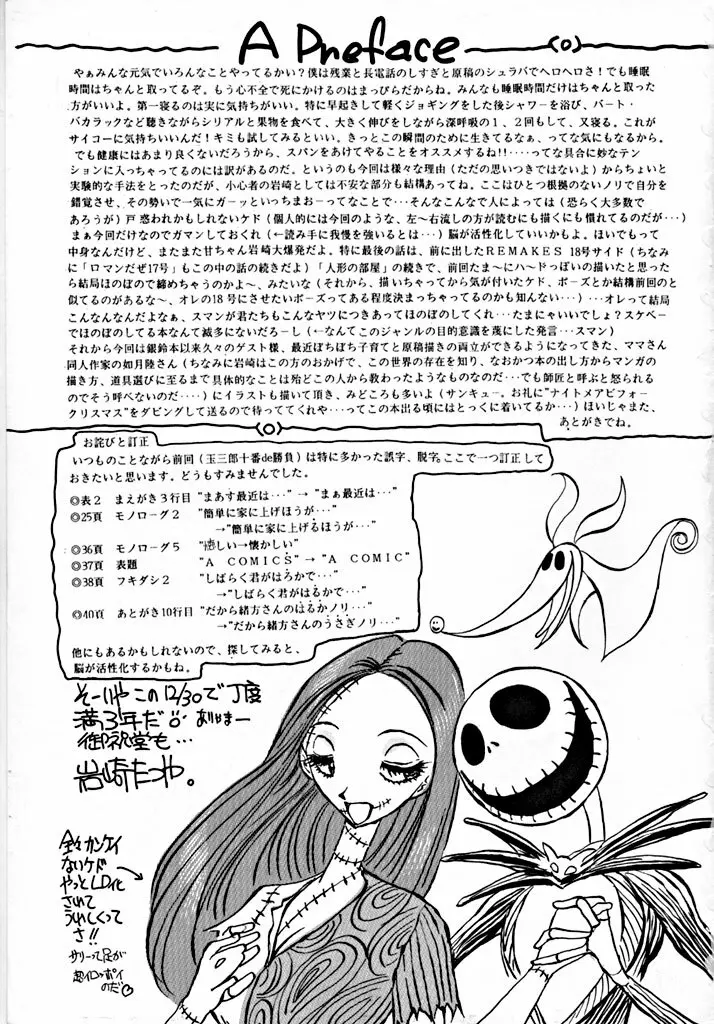 A Preface
やぁみんな元気でいろんなことやってるかい？僕は残業と長電話のしすぎと原稿のシュラバでヘロヘロさ！でも睡眠
時間はちゃんと取ってるぞ。もう心不全で死にかけるのはまっぴらだからね。みんなも睡眠時間だけはちゃんと取った
方がいいよ。第一寝るのは実に気持ちがいい。特に早起きして軽くジョギングをした後シャワーを浴び、バート・
バカラックなど聴きながらシリアルと果物を食べて、大きく伸びをしながら深呼吸の１、２回もして、又寝る。これが
サイコーに気持ちいいんだ！キミも試してみるといい。きっとこの瞬間のために生きてるなぁ、ってな気にもなるから。
でも健康にはあまり良くないだろうから、スパンをあけてやることをオススメするね!!‥‥ってな具合に妙なテン
ションに入っちゃってるのには訳があるのだ。というのも今回は様々な理由（ただの思いつきではないよ）からちょいと
実験的な手法をとったのだが、小心者の岩崎としては不安な部分も結構あってね。ここはひとつ根拠のないノリで自分を
錯覚させ、その勢いで一気にガーッといっちまおーってなことで‥‥そんなこんなで人によっては（恐らく大多数で
あろうが）戸惑われるかもしれないケド（個人的には今回のような、左〜右流しの方が読むにも描くにも慣れてるのだが…）
まぁ今回だけなのでガマンしておくれ（←読み手に我慢を強いるとは…）脳が活性化していいかもよ。ほいでもって
中身なんだけど、またまた甘ちゃん岩崎大爆発だよ。特に最後の話は、前に出したＲＥＭＡＫＥＳ 18号サイド（ちなみ
に「ロマンだぜ17号」もこの中の話の続きだよ）「人形の部屋」の続きで、前回たま〜にハ〜ドっぽいの描いたと思った
ら結局ほのぼので締めちゃうのかよ〜、みたいな（それから、描いちゃってから気が付いたケド、ポーズとか結構前回のと
似てるのがあるな〜、オレの18号にさせたいポーズってある程度決まっちゃってるのかも知んない…）…オレって結局
こんなんなんだよなぁ、スマンが君たちもこんなヤツにつきあってほのぼのしてくれ…たまにゃいいでしょ？スケベー
でほのぼのしてる本なんて滅多にないだろーし（←なんてこのジャンルの目的意識を蔑にした発言…スマン）
それから今回は銀鈴本以来久々のゲスト様、最近ぼちぼち子育てと原稿描きの両立ができるようになってきた、ママさん
同人作家の如月陸さん（ちなみに岩崎はこの方のおかげで、この世界の存在を知り、なおかつ本の出し方からマンガの
描き方、道具選びに至るまで具体的なことは殆どこの人から教わったようなものなのだ…でも師匠と呼ぶと怒られる
のでそう呼べないのだ‥‥）にイラストも描いて頂き、みどころも多いよ（サンキュー。お礼に"ナイトメアビフォー
クリスマス"をダビングして送るので待っててくれや…ってこの本出る頃にはとっくに着いてるか…）ほいじゃまた、
あとがきでね。
お詫びと訂正
いつものことながら前回（玉三郎十番de勝負）は特に多かった誤字、脱字、ここで一つ訂正して
おきたいと思います。どうもすみませんでした。
◎表２　まえがき３行目 "まあす最近は…" → "まぁ最近は…"
◎25頁　モノローグ２　"簡単に家に上げほうが…"
→"簡単に家に上げるほうが…"
◎36頁　モノローグ５　"悽しい→懐かしい"
◎37頁　表題　"Ａ ＣＯＭＩＣＳ" → "Ａ ＣＯＭＩＣ"
◎38頁　フキダシ２　"しばらく君がはろかで…"
→"しばらく君がはるかで…"
◎40頁　あとがき10行目 "だから緒方さんのはるかノリ…"
→"だから緒方さんのうさぎノリ…"
他にもあるかもしれないので、探してみると、
脳が活性化するかもね。
そーいや この12/30で丁度
満3年だ。ありはまー
御祝堂も…
岩崎たつや。
全々カンケイ
ないケド
やっとLD化
されて
うれしくって
さ!!
サリーって足が
超イロッポイ
のだ♡